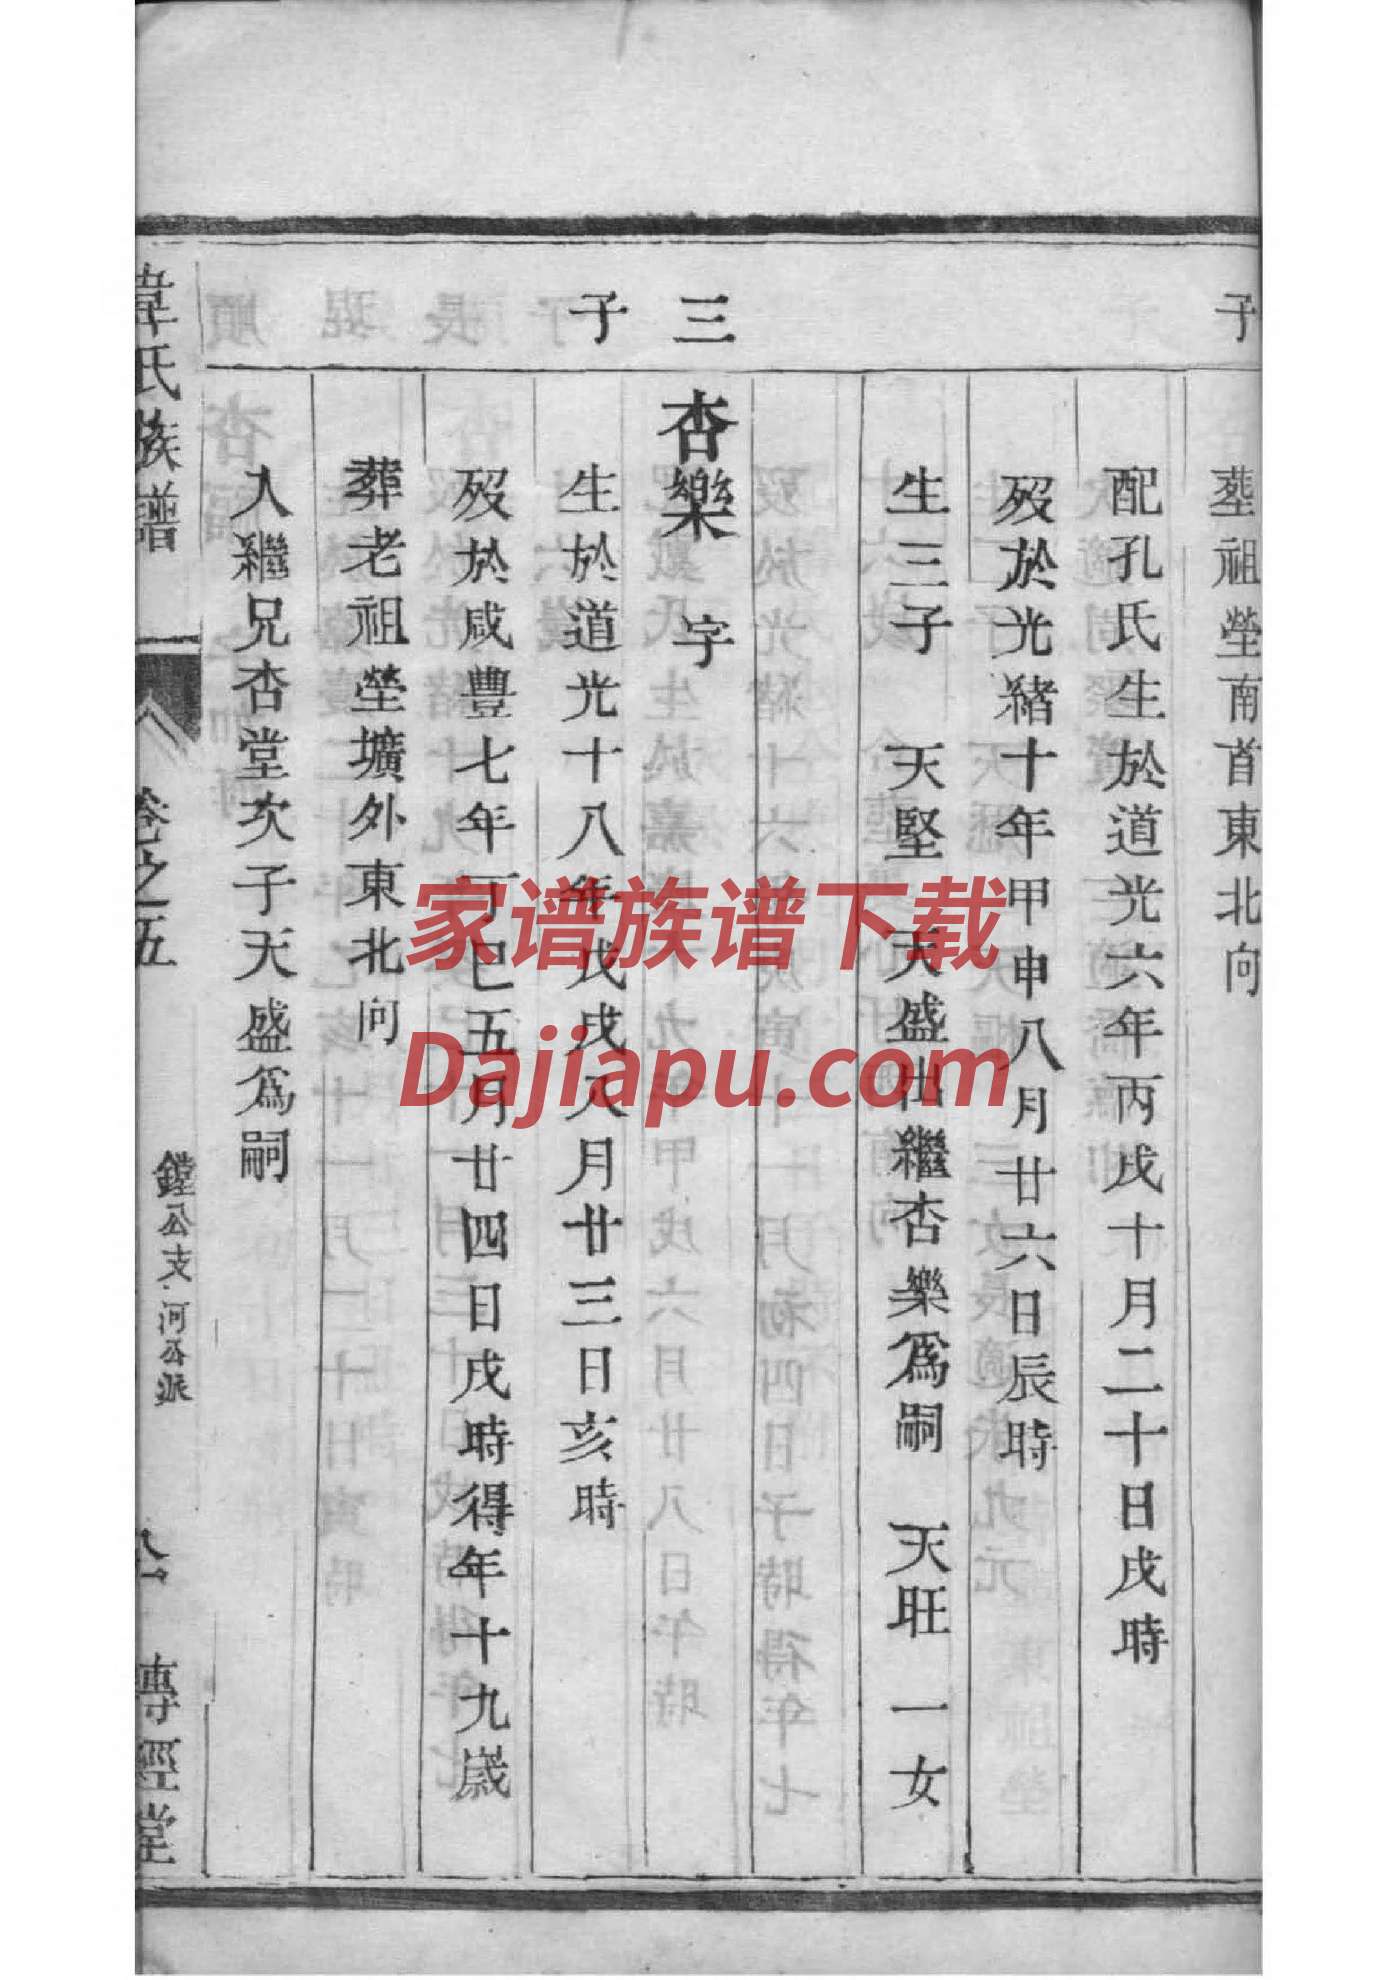 子
葬祖塋南首東北向
配孔氏生於道光六年丙戌十月二十日戌時
歿於光緒十年甲申八月廿六日辰時
生三子　天堅　天盛出繼杏樂爲嗣　天旺　一女
三子
杏樂　字
生於道光十八年戊戌八月廿三日亥時
歿於咸豐七年丁巳五月廿四日戌時得年十九歲
葬老祖塋壙外東北向
入繼兄杏堂次子天盛爲嗣
韋氏族譜
卷之五
鏜公支河公派
傳經堂
家谱族谱下载
Dajiapu.com